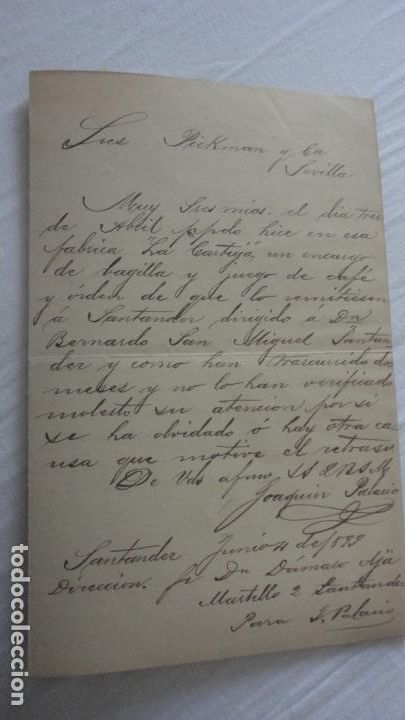 Sres Pickman y Ca
Sevilla
Muy Sres mios: el dia tres
de Abril ppdo hice en esa
fabrica "La Cartuja", un encargo
de bagilla y juego de café
y órden de que lo remitiesen
á Santander dirigido a Dn
Bernardo San Miguel Santan
der y como han trascurrido dos
meses y no lo han verificado
molesto su atencion por si
se ha olvidado ó hay otra ca
usa que motive el retraso
De Vds afmo S. S. Q B S. M.
Joaquin Palacio
Santander Junio 4 de 1899
Direccion. Sr Dn Damaso Aja
Martillo 2 Santander
Para J. Palacio
todocoleccion